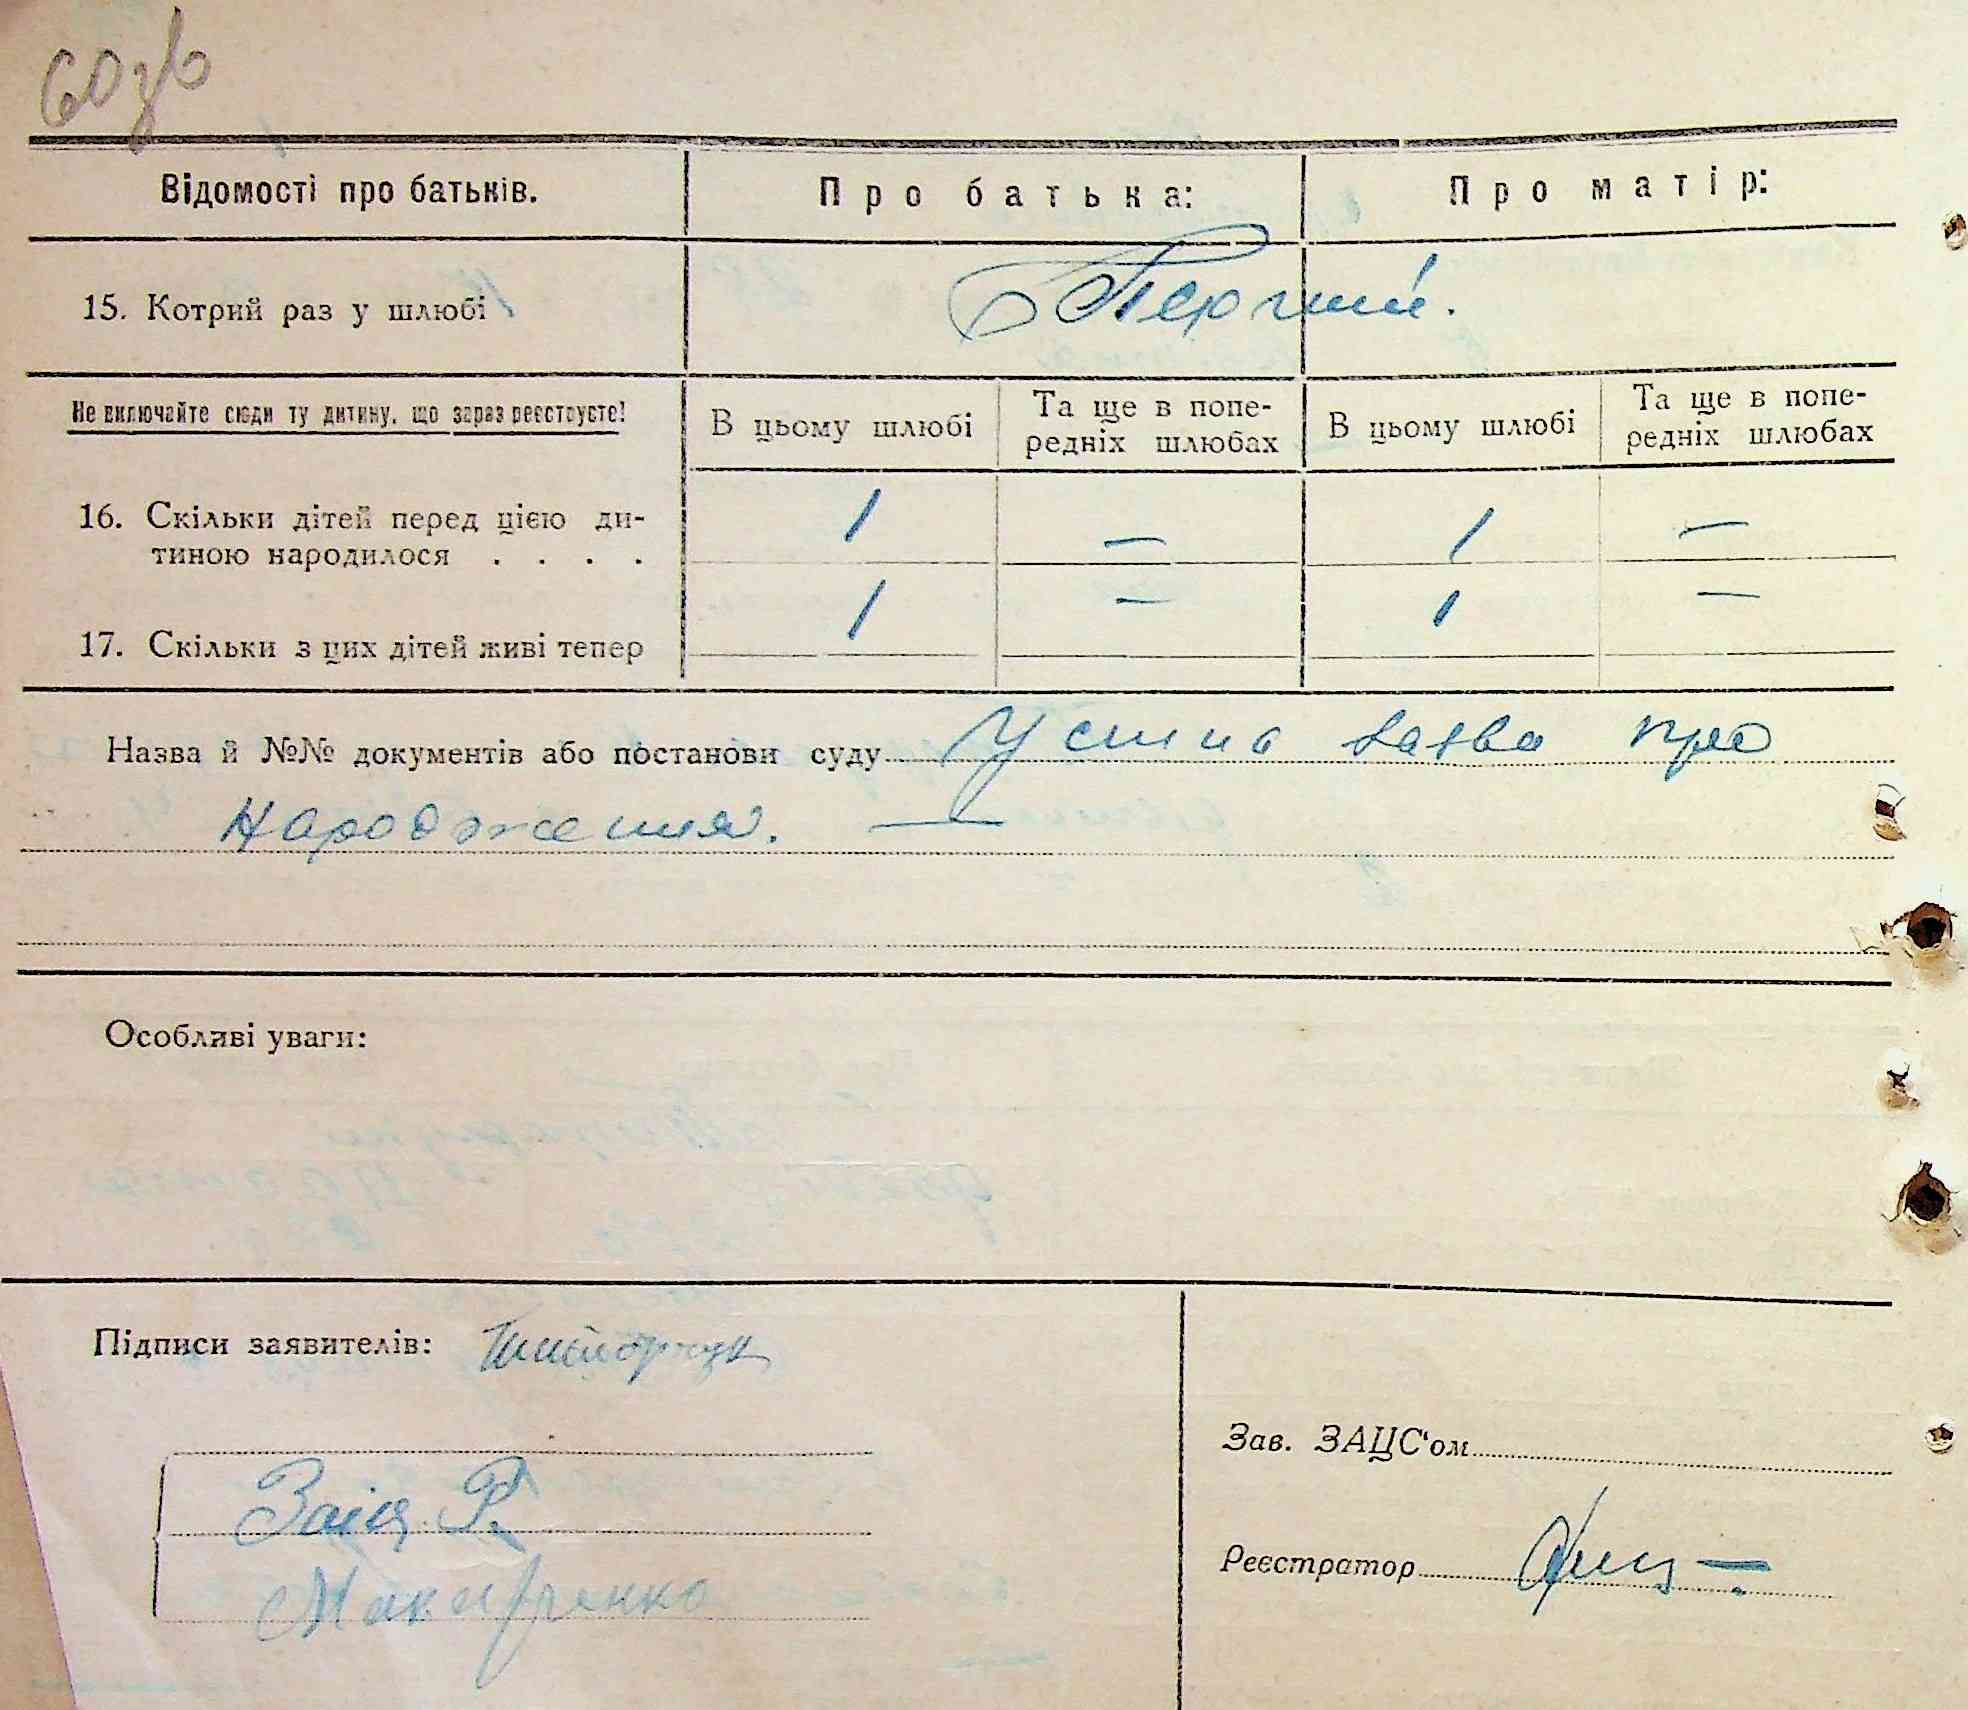 60 зв
Відомості про батьків. Про батька: Про матір:
15. Котрий раз у шлюбі Перший.
Не включайте сюди ту дитину, що зараз реєструєте!
В цьому шлюбі Та ще в попе-редніх шлюбах В цьому шлюбі Та ще в попе-редніх шлюбах
16. Скільки дітей перед цією ди-
тиною народилося . . . . 1 — 1 —
17. Скільки з цих дітей живі тепер 1 — 1 —
Назва й №№ документів або постанови суду Усина заява про
народження. —
Особливі уваги:
Підписи заявителів:
Заіц Р.
Макаренко
Зав. ЗАЦС'ом
Реєстратор